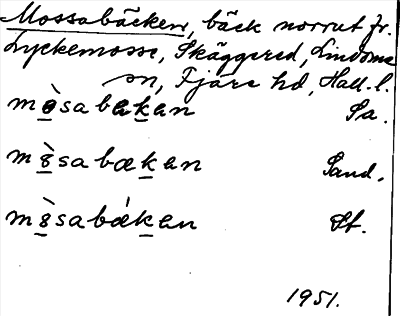 Mossabäcken, bäck norrut fr.
Lyckemosse, Skäggered, Lindome
sn, Fjäre hd, Hall. l.
mòsabækan Sa.
mòsabækan Sand.
mòsabǽkan St.
1951.